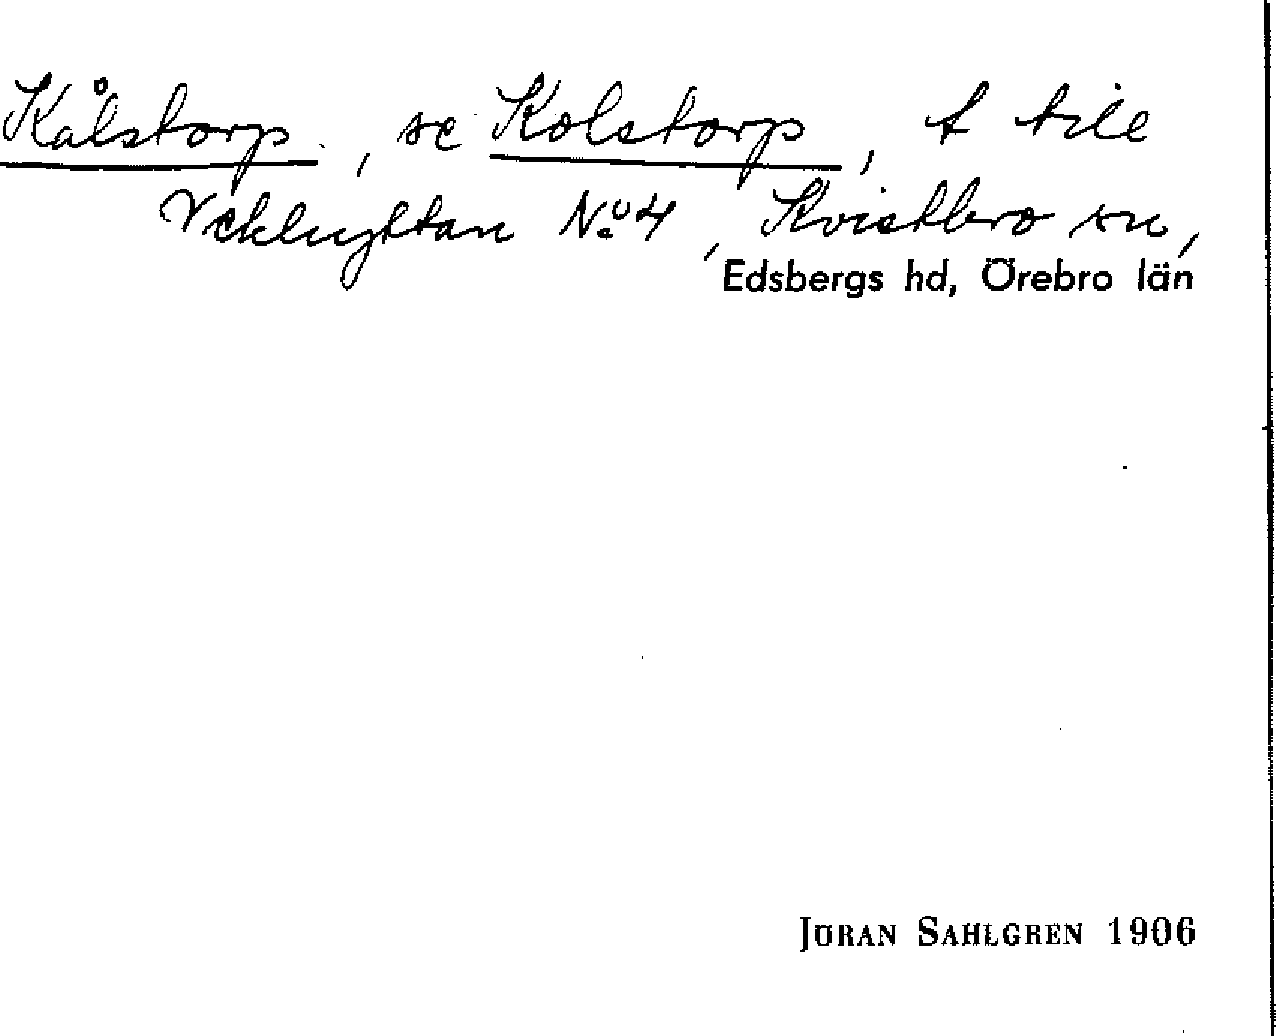 Kålstorp, se Kolstorp, t till
Vekhyttan No 4, Kvistbro sn,
Edsbergs hd, Örebro län
JÖRAN SAHLGREN 1906